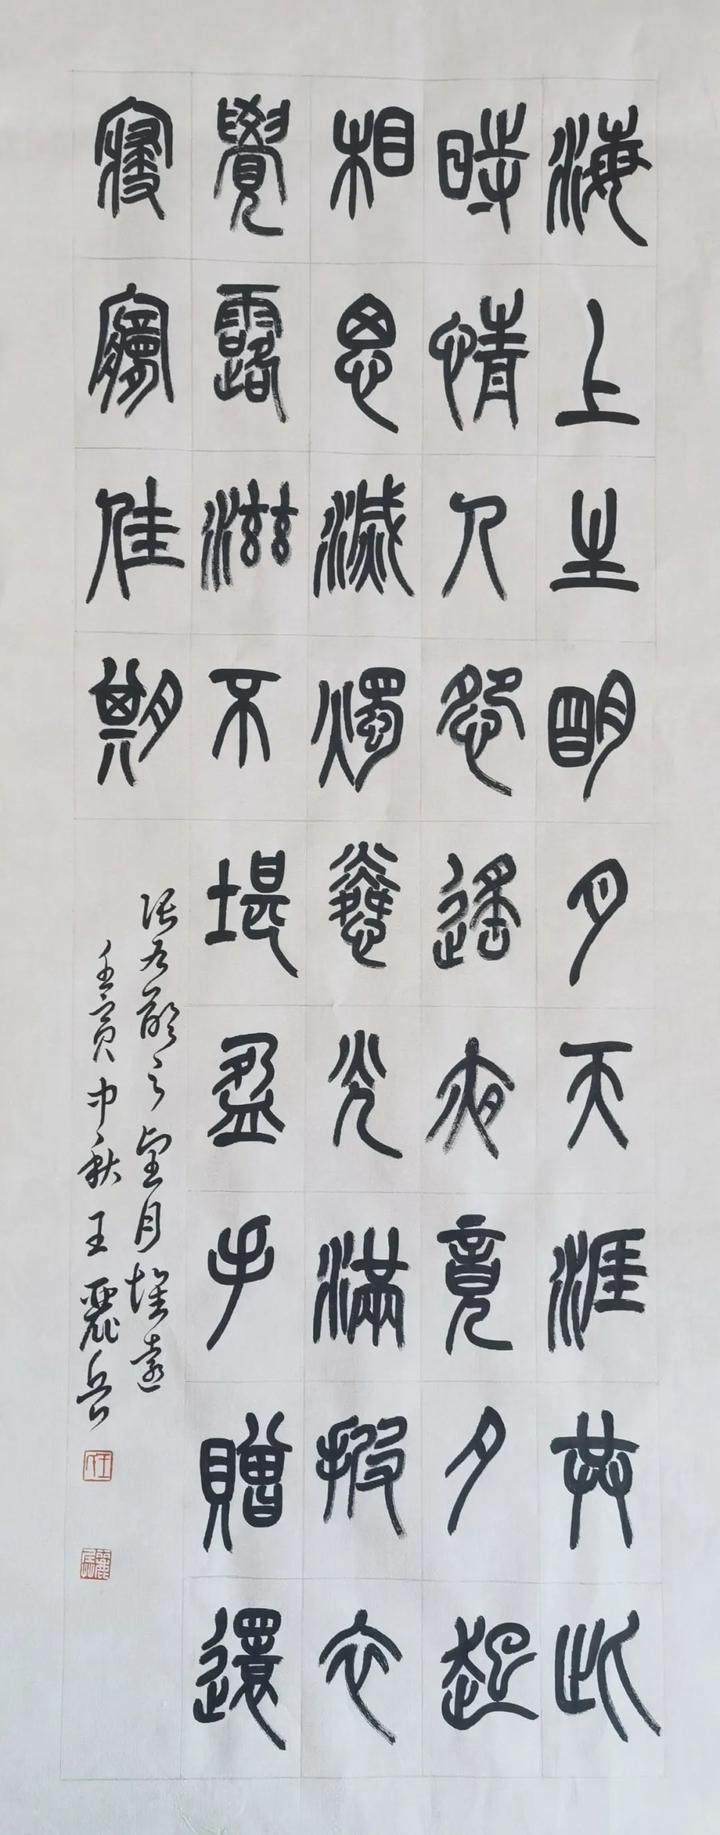 海上生明月天涯共此
時情人怨遙夜竟夕起
相思滅燭憐光滿披衣
覺露滋不堪盈手贈還
寢夢佳期
張九齡之望月懷遠
壬寅中秋王麗岳